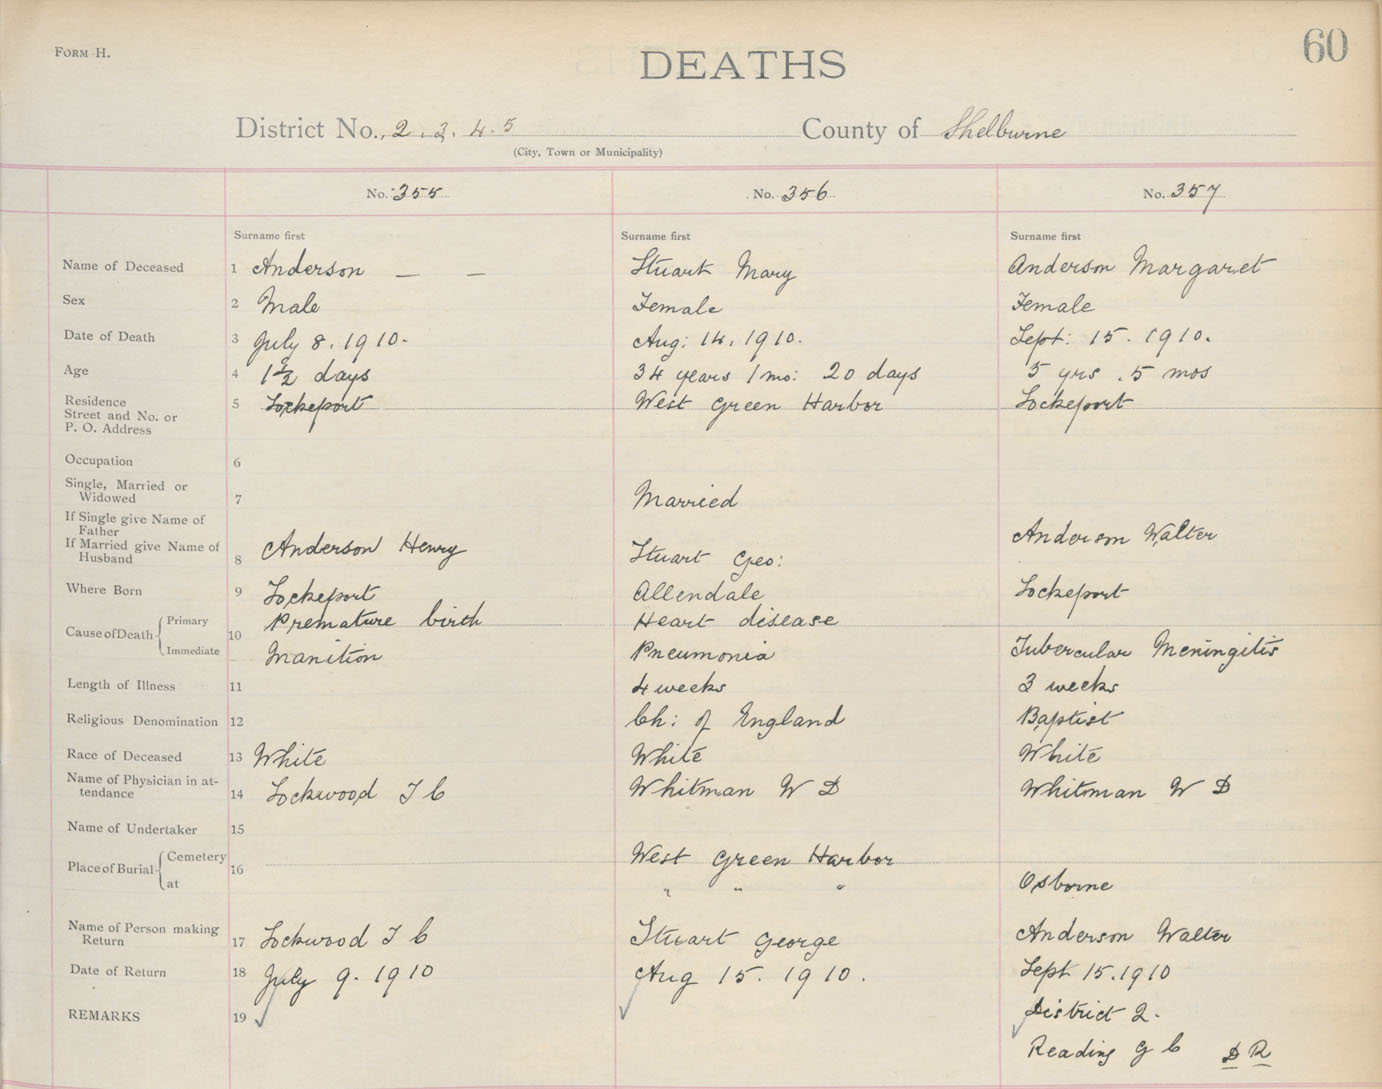 FORM H.
DEATHS
60
District No. 2. 3. 4. 5 County of Shelburne
(City, Town or Municipality)
No. 355 No. 356 No. 357
Surname first Surname first Surname first
Name of Deceased 1 Anderson — — Stuart Mary Anderson Margaret
Sex 2 Male Female Female
Date of Death 3 July 8. 1910. Aug: 14. 1910. Sept: 15. 1910.
Age 4 1 1/2 days 34 years 1 mo: 20 days 5 yrs . 5 mos
Residence 5 Lockeport West Green Harbor Lockeport
Street and No. or
P. O. Address
Occupation 6
Single, Married or
Widowed 7 Married
If Single give Name of
Father
If Married give Name of
Husband 8 Anderson Henry Stuart Geo: Anderson Walter
Where Born 9 Lockeport Allendale Lockeport
Cause of Death 10 Primary Premature birth Heart disease
Immediate Inanition Pneumonia Tubercular Meningitis
Length of Illness 11 4 weeks 3 weeks
Religious Denomination 12 Ch: of England Baptist
Race of Deceased 13 White White White
Name of Physician in at-
tendance 14 Lockwood T C Whitman W D Whitman W D
Name of Undertaker 15
Place of Burial 16 Cemetery West Green Harbor
at " " " Osborne
Name of Person making
Return 17 Lockwood T C Stuart George Anderson Walter
Date of Return 18 July 9. 1910 Aug 15. 1910. Sept 15. 1910
REMARKS 19 District 2.
Reading G C D R